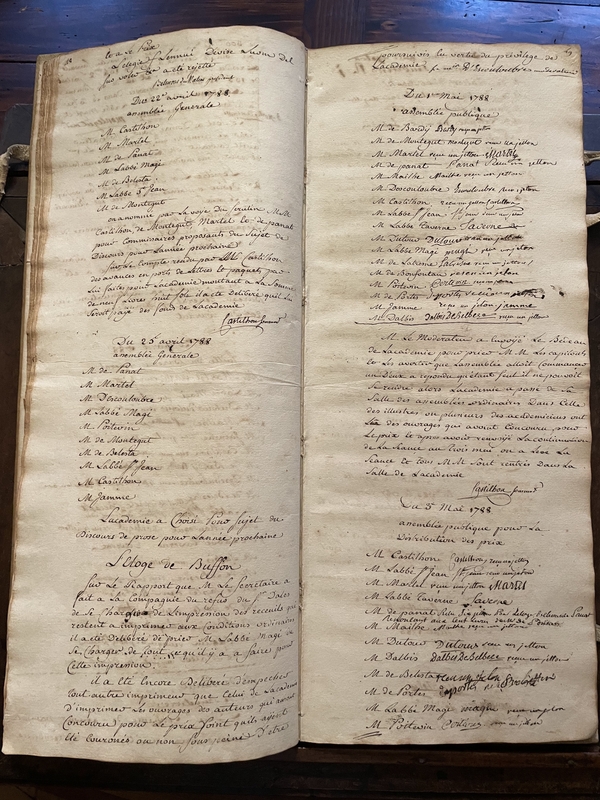 Du 22e avril 1788
assemblée Generale
M. Castilhon
M. Martel
M. de Panat
M. Labbé Magi
M. de Belesta
M. Labbé St Jean
M. de Montegut
on a nommé par la voye du scrutin M.M.
Castilhon de Montegut, Martel et de panat
pour Commissaires proposants du Sujet de
Discours pour Lannée prochaine
Sur Le Compte rendu par M. Castilhon
des avances en ports de Lettres et paquets par
Lui faites pour Lacademie montant a La Somme
Seront payé des fonds de Lacademie
Castilhon
Du 25 avril 1788
assemblée Generale
M. de Panat
M. Martel
M. Descouloubre
M. Labbé Magi
M. Poitevin
M. de Montegut
M. de Belesta
M. Labbé St Jean
M. Castilhon
M. Jamme
Lacademie a Choisi Pour Sujet du
Discours de prose pour Lannée prochaine
L'Eloge de Buffon
Sur Le Rapport que M. Le Secretaire a
fait a La Compagnie du refus du Sr
de Se Charger de Limpression des recueils qui
restent a imprimer aux Conditions ordinaires
il a eté deliberé de prier M. Labbé Magi de
Se Charger de tout ce quil y a a faire pour
Cette impression.
il a eté Encore Deliberé Dempecher
tout autre imprimeur que Celui de Lacademie
D'imprimer Les ouvrages des auteurs qui auront
Concouru pour Le prix Soit quils ayent
eté Couronés ou non Sous peine D'etre
poursuivis en vertu du privilege de
Lacademie
Du 1er Mai 1788
assemblée publique
M. de Bardy
M. de Montegut
M. Martel reçu un jetton Martel
M. de panat Panat reçu un jetton
M. Mailhe Mailhe reçu un jetton
M. Descouloubre
M. Castilhon
M. Labbé St Jean
M. Labbé Taverne Taverne
M. Dutour Dutour
M. Labbé Magi
M. de Laverne
M. de Bonfontan
M. Poitevin Poitevin
M. de Portes
M. Jamme reçu un jetton Jamme
M. Dalbis Dalbis de Belbeze reçu un jetton
M. Le Moderateur a envoyé Le Bedeau
de Lacademie pour prier M.M. Les capitouls
et Les avertir que Lassemblée alloit Commencer
un deux a repondu quetant Seul il ne pouvoit
Se rendre alors Lacademie a passé de La
Salle des assemblées ordinaires Dans Celle
des illustres ou plusieurs des academiciens ont
Lu des ouvrages qui avoient Concouru pour
Le prix et apres avoir renvoyé La continuation
de La Seance au trois mai on a Levé La
Seance et tous M.M. Sont rentrés Dans La
Salle de Lacademie
Castilhon
Du 3 Mai 1788
assemblée publique pour La
Distribution des prix
M. Castilhon Castilhon
M. Labbé St Jean
M. Martel reçu un jetton Martel
M. Labbé Taverne Taverne
M. de panat
M. Mailhe Mailhe reçu un jetton
M. Dutour Dutour reçu un jetton
M. Dalbis Dalbis de Belbeze reçu un jetton
M. de Belesta
M. de Portes
M. Labbé Magi magi reçu un jetton
M. Poitevin Poitevin reçu un jetton